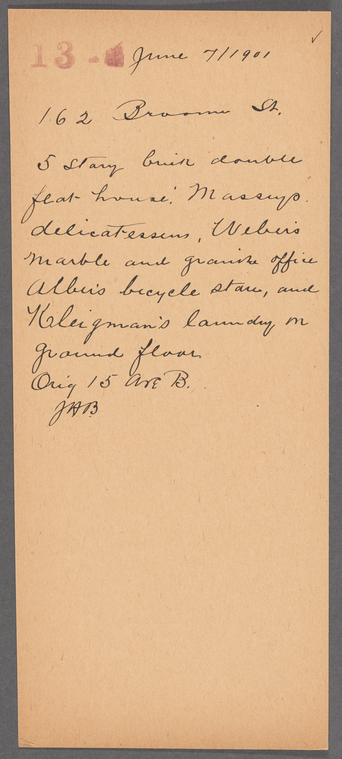 13 - June 7/1901
162 Broome St.
5 story brick double
flat house. Massup
delicatessens, Weber's
marble and granite office
Alber's bicycle store, and
Kleigman's laundry on
ground floor
Orig 15 Ave B.
JHB